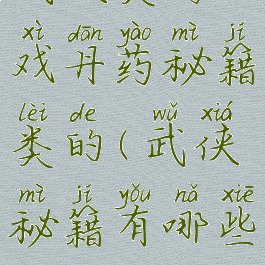 xì dān yào mì jí
戏丹药秘籍
lèi de wǔ xiá
类的(武侠
mì jí yǒu nǎ xiē
秘籍有哪些